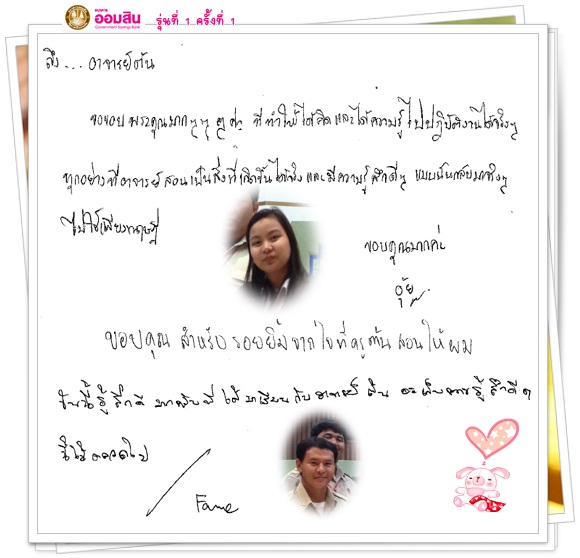 ธนาคาร
ออมสิน
Government Savings Bank
รุ่นที่ 1 ครั้งที่ 1
ถึง ... อาจารย์ต้น
ขอขอบพระคุณมากๆๆๆ ค่ะ ที่ทำให้ได้คิดและได้ความรู้ไปปฏิบัติงานได้จริงๆ
ทุกอย่างที่อาจารย์สอนเป็นสิ่งที่เกิดขึ้นได้จริง และมีความรู้สึกดีๆ แบบนั้นกลับมาจริงๆ
ไม่ใช่เพียงทฤษฎี
ขอบคุณมากค่ะ
อุ้ย
ขอบคุณ สำหรับ รอยยิ้มจากใจที่ครูต้น สอนให้ผม
วันนี้รู้สึกดี มากครับที่ได้มาเรียนกับอาจารย์ต้น จะเก็บความรู้สึกดีๆ
นี้ไว้ตลอดไป
Fame